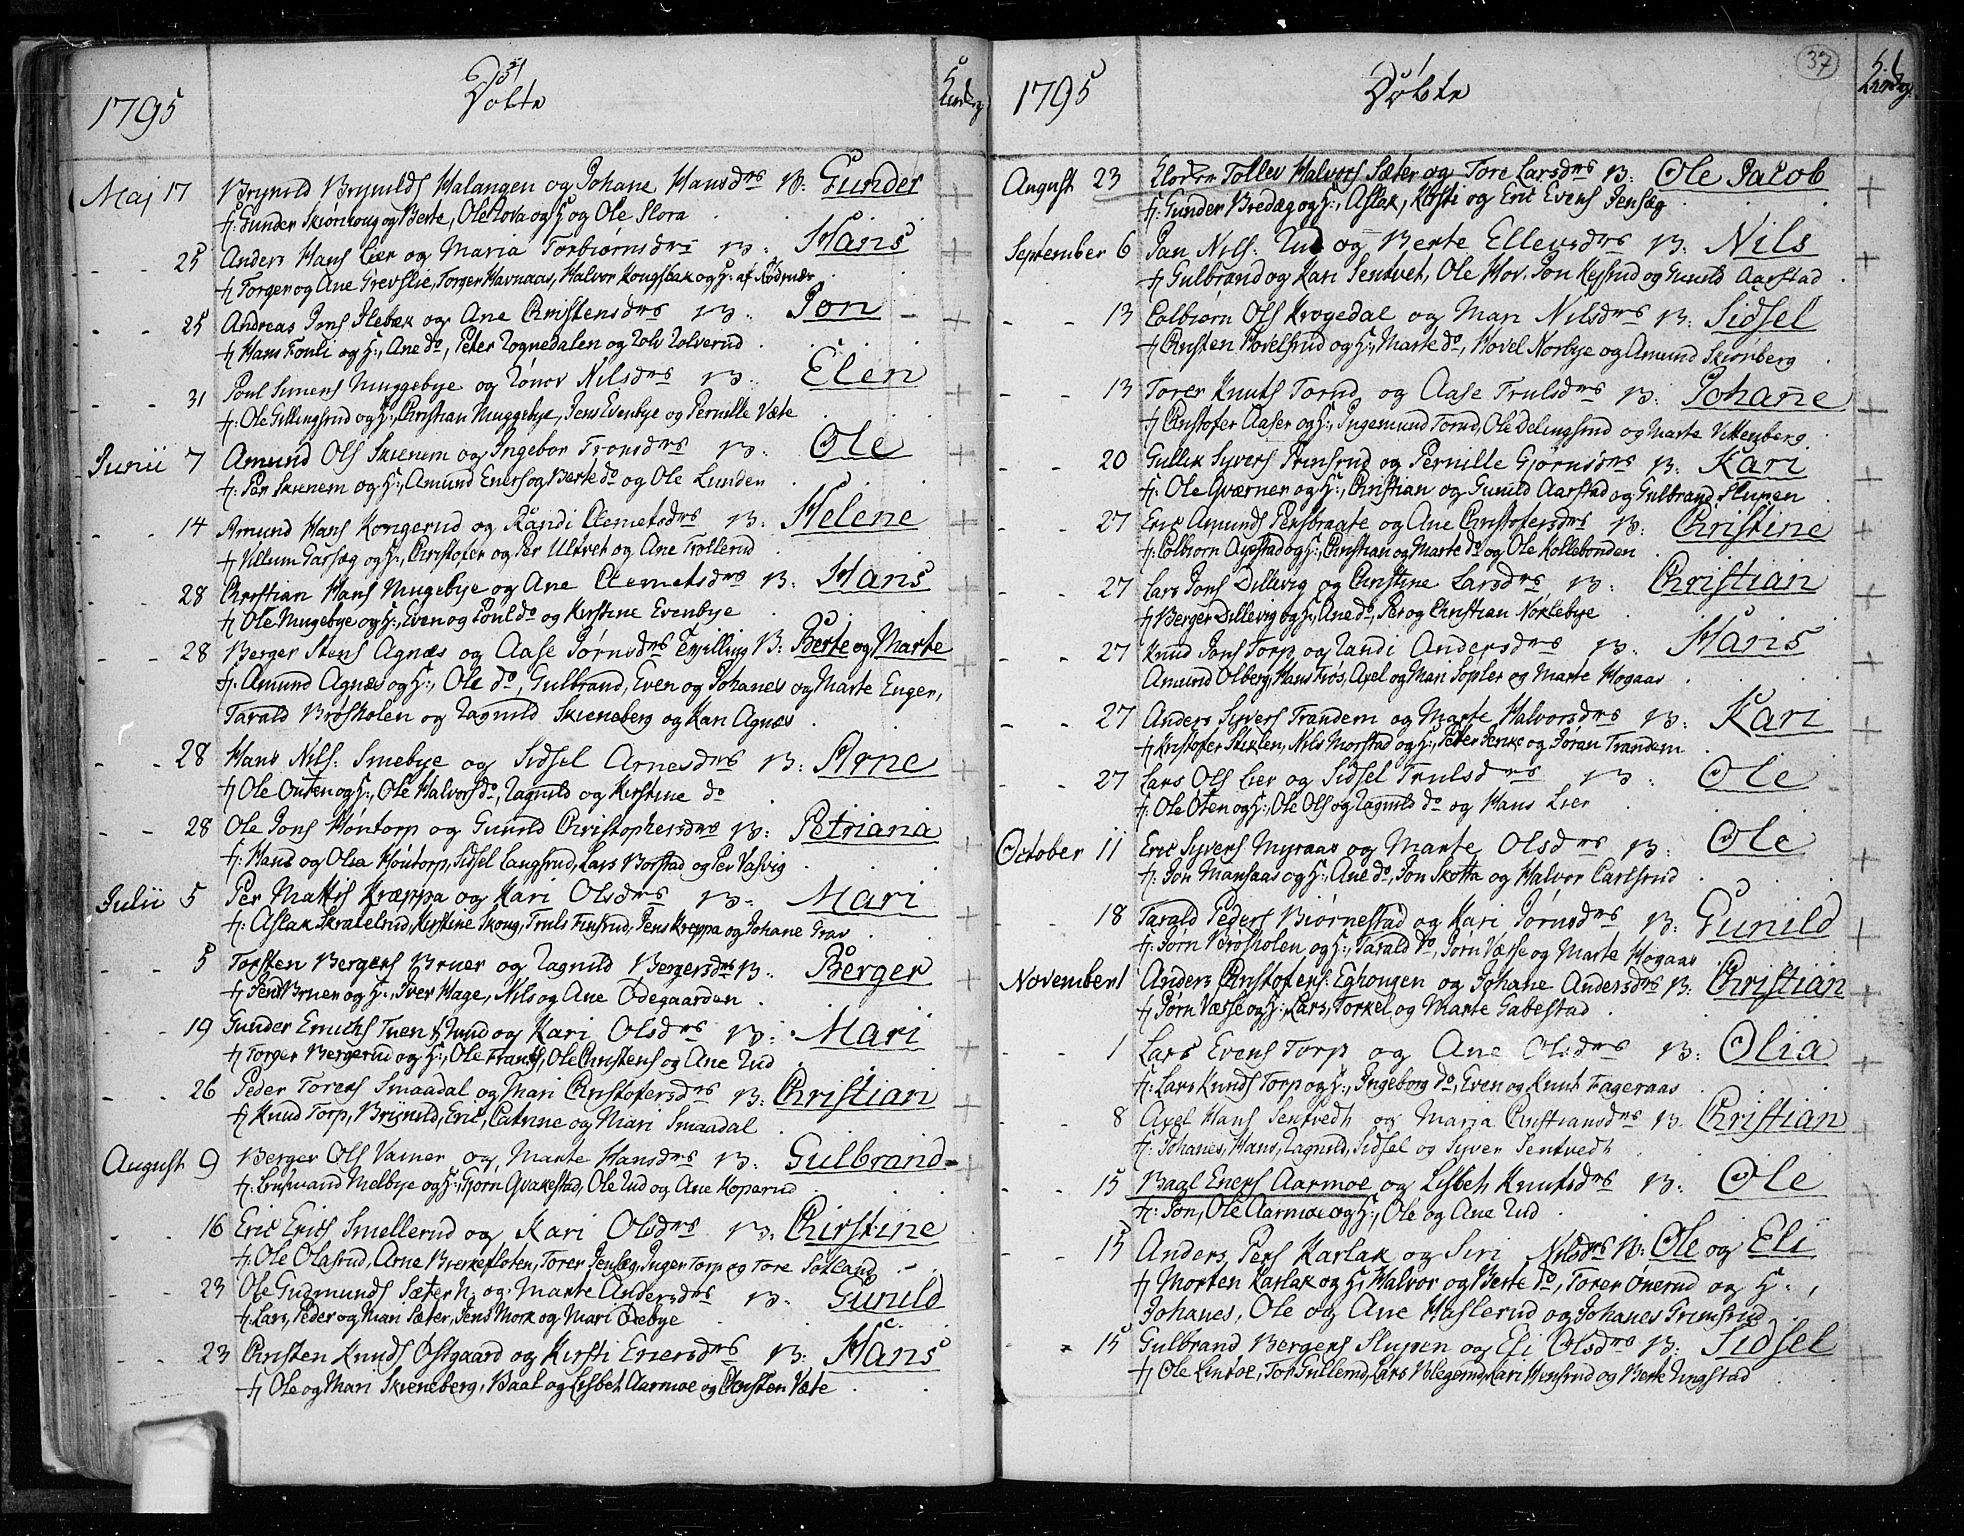 1795
Døbte
Maj 17 Brynild Brynilds Halangen og Johane Hansdrs B: Gunder
f: Gunder Skionhoug og Berte, Ole Slora og H og Ole Slora
25 Anders Hans Lier og Maria Torbiørnsdrs B: Hans
f Torger og Ane Grevslie, Torger Havnaas, Halvor Kongsbak og H: af Rødenæs
25 Andreas Jons Ilebæk og Ane Christensdrs B: Jon
f Hans Fonli og H:, Ane do, Peter Tognedalen og Rolv Rolverud
31 Poul Simens Muggebye og Rønov Nilsdrs B: Elen
f: Ole Gillingsrud og H:, Christian Muggebye, Jens Evenbye og Pernille Væte
Junii 7 Amund Ols Skienem og Ingebor Tronsdrs B: Ole
f: Per Skienem og H:, Amund Eners og Berte do og Ole Lunden
14 Amund Hans Kongerud og Randi Clemetsdrs B: Helene
f Villum Garsæg og H:, Christofer og Per Ultvet og Ane Trollerud
28 Christian Hans Mugebye og Ane Clemetsdrs B: Hans
f Ole Mugebye og H:, Even og Poul do og Kirstine Evenbye
28 Berger Stens Agnæs og Aase Jørnsdrs Tvilling B: Berte og Marte
f: Amund Agnæs og H:, Ole do, Gulbrand, Even og Johanes og Marte Enger,
Tarald Brøsholen og Ragnild Skieneberg og Kari Agnæs
28 Hans Nils: Smebye og Sidsel Arnesdrs B: Arne
f Ole Outen og H:, Ole Halvors do, Ragnild og Kirstine do
28 Ole Jons Høntorp og Gunild Christophersdrs B: Petriana
f: Hans og Olea Høntorp, Sidsel Langsrud, Lars Borstad og Per Vasvig
Julii 5 Per Mattis Kræppa og Kari Olsdrs B: Mari
f: Aslak Skratelrud, Kirstine Skoug, Truls Finsrud, Jens Kreppa og Johane Grav
5 Torsten Bergers Bruer og Ragnild Bergersdrs B: Berger
f Jens Bruer og H:, Iver Hage, Nils og Ane Ødegaarden
19 Gunder Enichs Tuen Hund og Kari Olsdrs B: Mari
f Torger Bergerud og H:, Ole Frants, Ole Christens og Ane Rud
26 Peder Torers Smaadal og Mari Christofersdrs B: Christian
f Knud Torp, Brynild, Eric, Catrine og Mari Smaadal
August 9 Berger Ols Vamer og Marte Hansdrs B: Gulbrand
f: Melbye og H:, Gjørn Qvakestad, Ole Rud og Ane Koperud
16 Eric Erics Smellerud og Kari Olsdrs B: Chirstine
f: Ole Olasrud, Arne Berkefloten, Torer Jensæg, Inger Torp og Tore Sotland
23 Ole Gudmunds Sæter N. og Marte Andersdrs B: Gunild
f: Lars, Peder og Mari Sæter, Jens Mork og Mari Odebye
23 Christen Knuds Østgaard og Kirsti Enersdrs B: Hans
f Ole og Mari Skieneberg, Baal og Lisbet Aarmoe og Christen Væte
37
1795
Døbte
August 23 Tollev Halvors Sæter og Tore Larsdrs B: Ole Jacob
f: Gunder Bredæg og H:, Aslak, Kirsti og Eric Evens Jensæg
September 6 Jan Nils: Rud og Berte Ellevsdrs B: Nils
f Gulbrand og Kari Sentvet, Ole Hov. Jon Kessrud og Gunild Aarstad
13 Colbiørn Ols Krogedal og Mari Nilsdrs B: Sidsel
f Christen Hovelsrud og H:, Marte do, Hovel Norbye og Amund Skiønberg
13 Torer Knuts Torud og Aase Trulsdrs B: Johane
f Christofer Aaser og H:, Ingemund Torud, Ole Delingsrud og Marte Vittenberg
20 Gullik Syvers Prinsrud og Pernille Gjørnsdrs B: Kari
f: Ole Qværner og H:, Christian og Gunild Aarstad og Gulbrand Slupen
27 Eric Amunds Persbraate og Ane Christofersdrs B: Christine
f: Colbiørn Ayestad og H:, Christian og Marte do og Ole Kollebonden
27 Lars Jons Dillevig og Christine Larsdrs B: Christian
f Berger Dillevig og H:, Ane do, Per og Christian Nøklebye
27 Knud Jons Torp og Randi Andersdrs B: Hans
Amund Olberg, Hans Krøs, Axel og Mari Sopler og Marte Hogaas
27 Anders Syvers Trandem og Marte Halvorsdrs B: Kari
f Kristofer Stiklen, Nils Morstad og H:, Peter Jenke og Jøran Trandem
27 Lars Ols Lier og Sidsel Trulsdrs B: Ole
f: Ole Øten og H:, Ole Ols og Ragnild do og Hans Lier
October 11 Eric Syvers Myraas og Marte Olsdrs B: Ole
f: Jon Mansaas og H:, Ane do, Jon Skotta og Halvor Carlsrud
18 Tarald Peders Biørnestad og Kari Jørnsdrs B: Gunild
f: Jørn Brøsholen, og H:, Tarald do, Jørn Væsse og Marte Hogaas
November 1 Anders Christofers: Eghougen og Johane Andersdrs B: Christian
f Jørn Væsse og H: Lars, Torkel og Marte Gabestad
1 Lars Evens Torp og Ane Olsdrs B: Olia
f: Lars Knuds Torp og H:, Ingeborg do, Even og Knut Fageraas
8 Axel Hans Sentvedt og Maria Christiansdrs B: Christian
f: Johanes, Hans, Ragnild, Sidsel og Syver Sentvedt
15 Baal Eners Aarmoe og Lisbeh Knutsdrs B: Ole
f: Jon, Ole Aarmoe og H:, Ole og Ane Rud
15 Anders Pers Karlak og Siri Nilsdrs B: Ole og Eli
f Morten Karlak og H; Halvor og Berte do, Torer Ønerud og H:,
Johanes, Ole og Ane Haslerud og Johanes Grimsrud
15 Gulbrand Bergers Slupen og Eli Olsdrs B: Sidsel
f Ole Lintoe, Tol Gullerud, Lars Volegerud, Kari Hensrud og Berte Ringstad